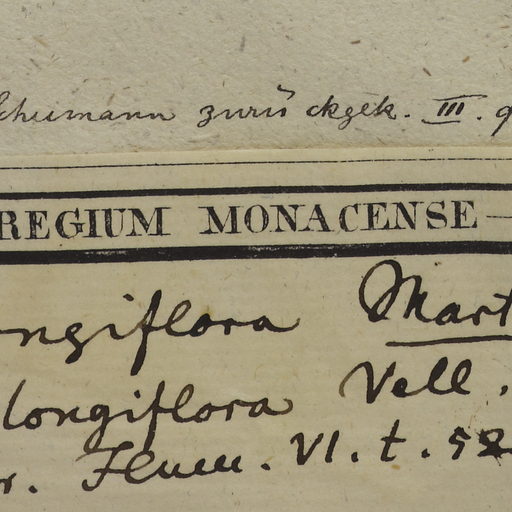 Schumann zurückgek. III. 9
REGIUM MONACENSE
ngiflora Mart
longiflora Vell.
r. Flum. VI. t. 52